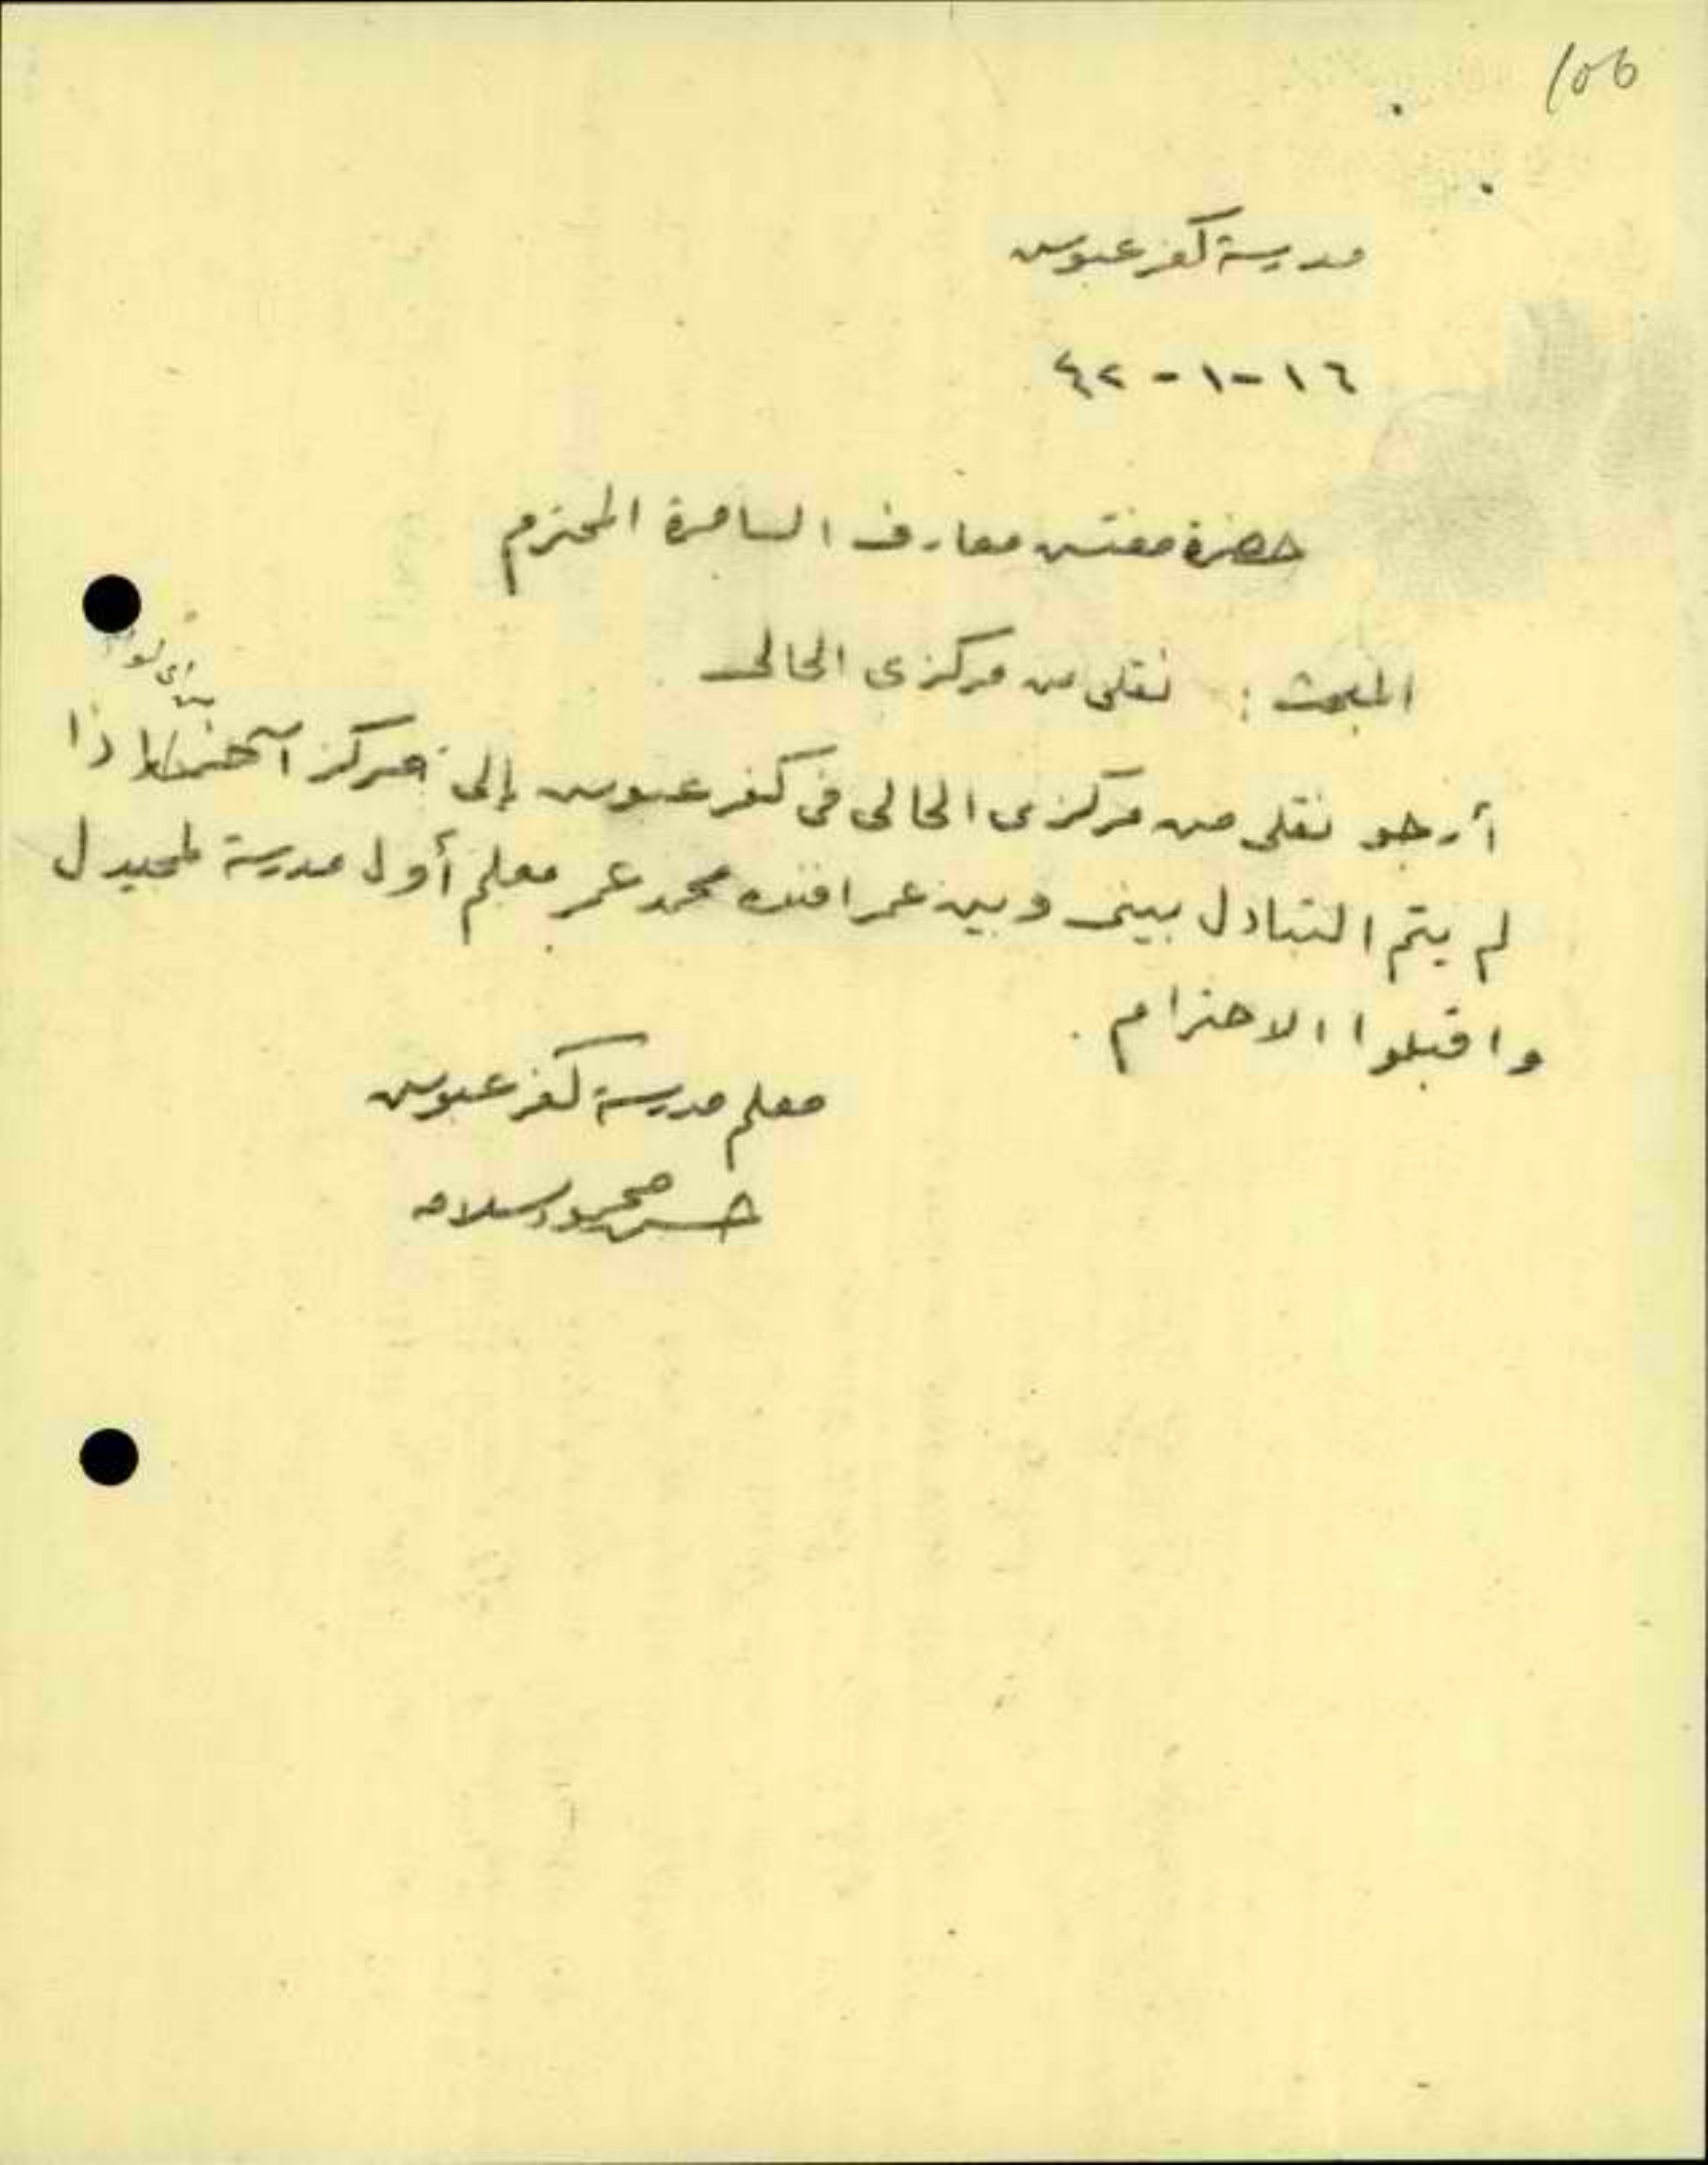 106
مدرسة كفر عبوس
١٦-١-٤٢
حضرة مفتش معارف السامرة المحترم
المبحث : نقلي من مركزي الحالي
أرجو نقلي من مركزي الحالي في كفر عبوس إلى مركز آخر اذا
لم يتم التبادل بيني وبين عمر افندي محمد عمر معلم أول مدرسة
واقبلوا الاحترام .
معلم مدرسة كفر عبوس
حسن محمود سلامه